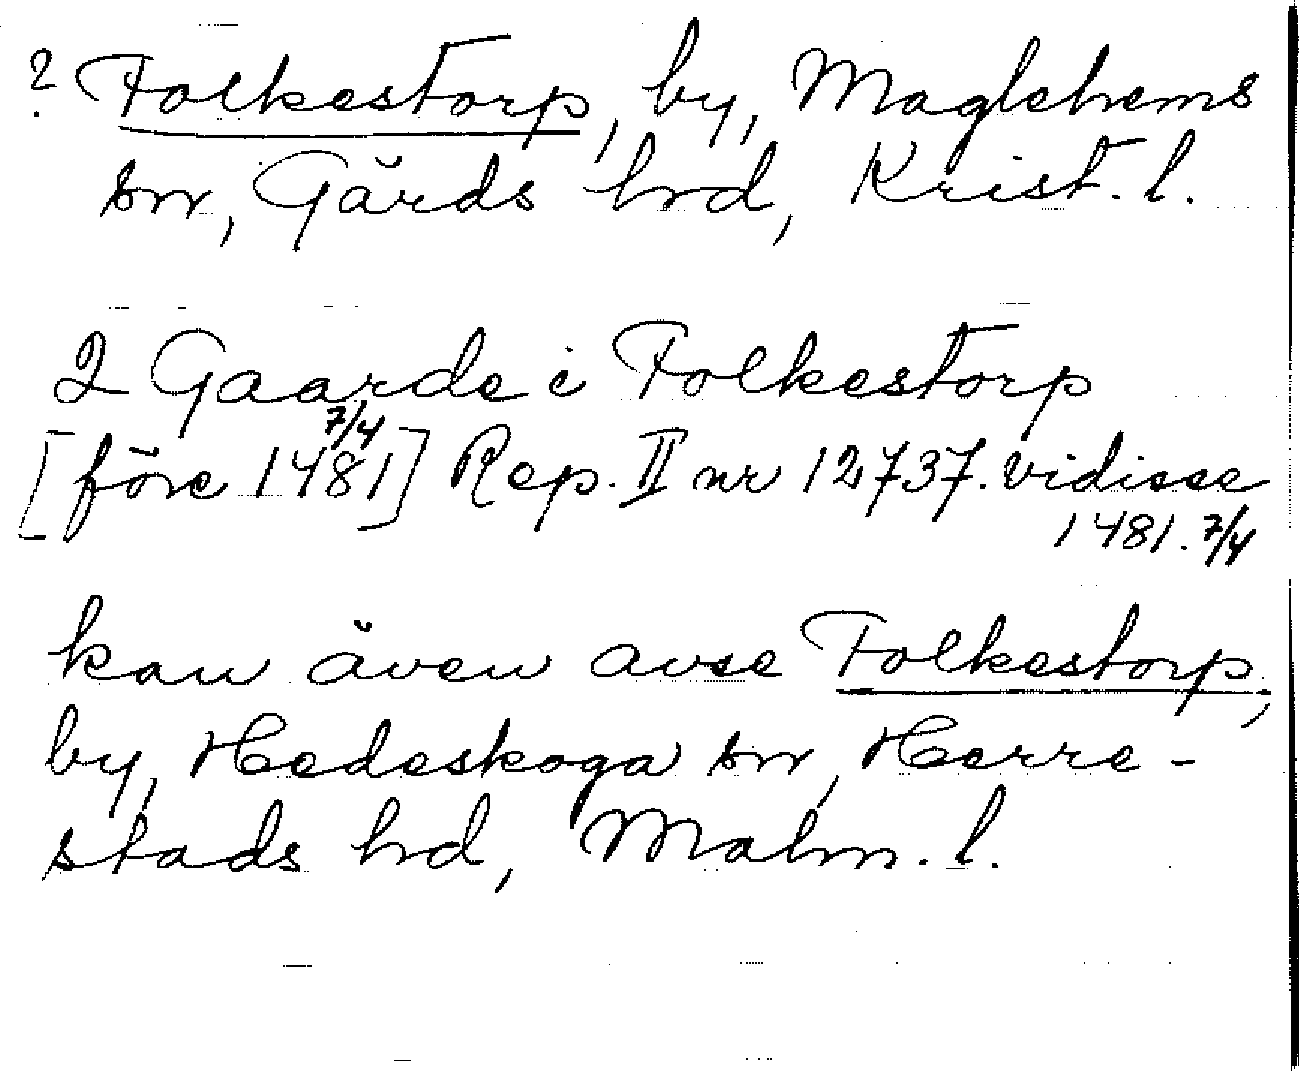 ? Folkestorp, by, Maglehems
sn, Gärds hrd, Krist. l.
2 Gaarde i Folkestorp
[före 1481 7/4] Rep. II nr 12737. vidisse
1481. 7/4
kan även avse Folkestorp,
by, Hedeskoga sn, Herre-
stads hrd, Malm. l.